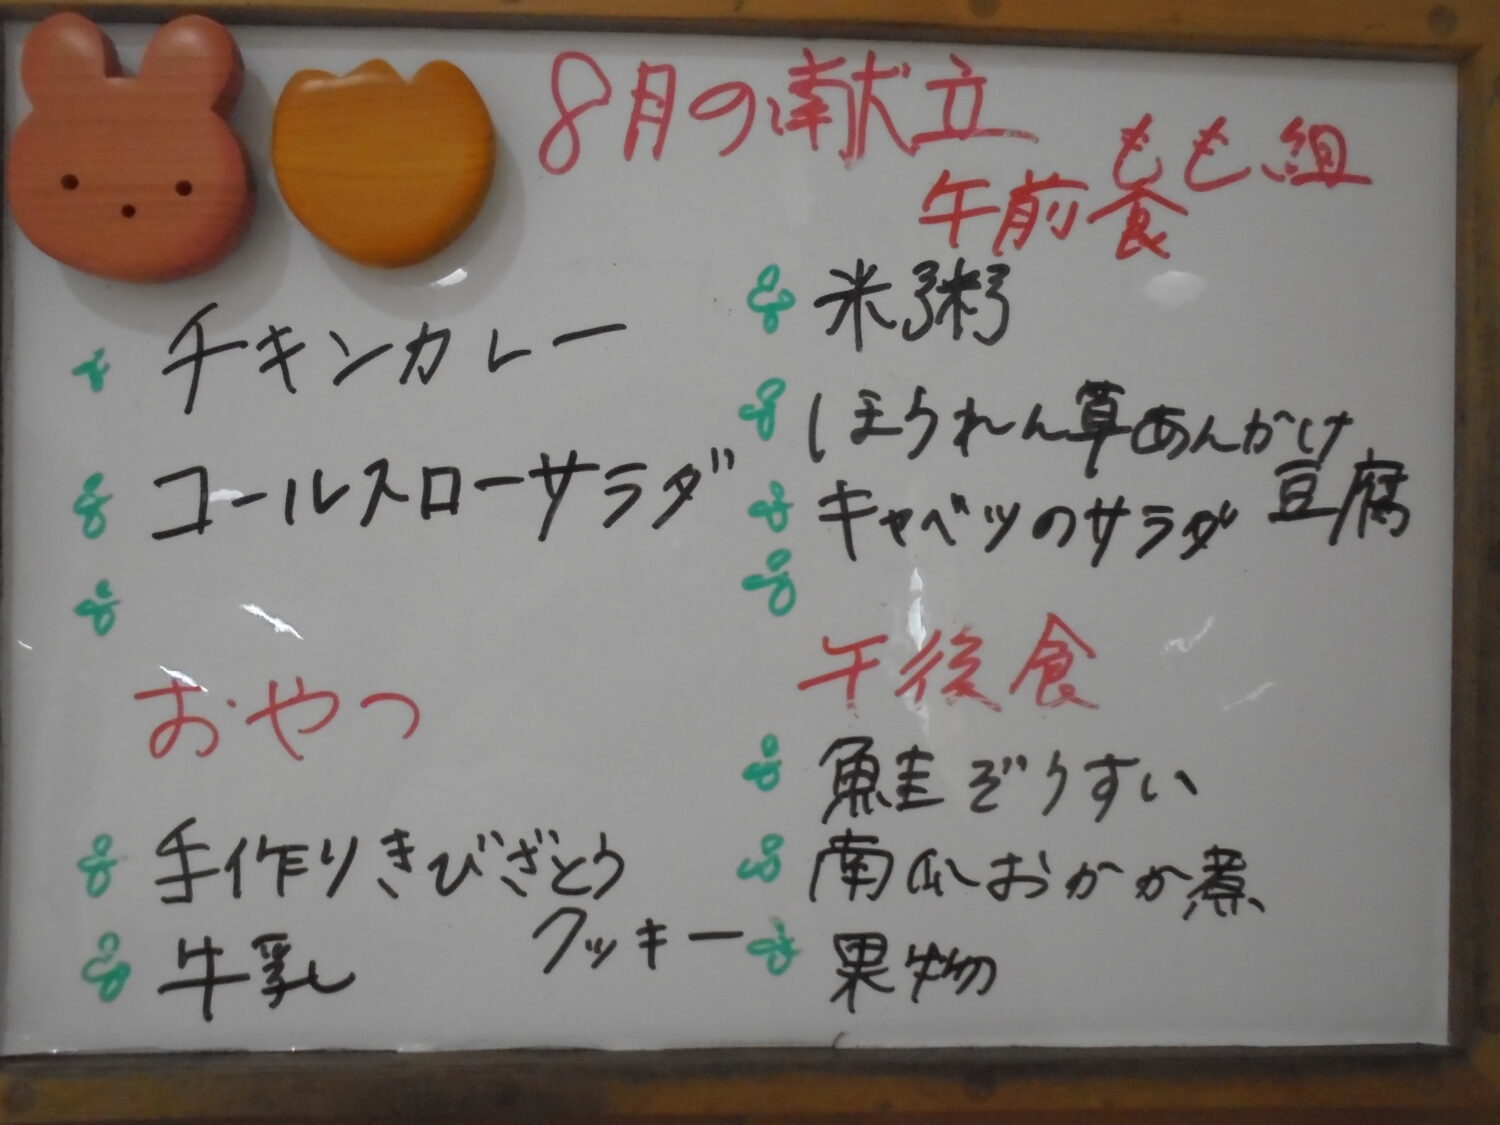 8月の献立
もも組
午前食
チキンカレー
コールスローサラダ
おやつ
手作りきびざとう
クッキー
牛乳
米粥
ほうれん草あんかけ
豆腐
キャベツのサラダ
午後食
鮭ぞうすい
南瓜おかか煮
果物